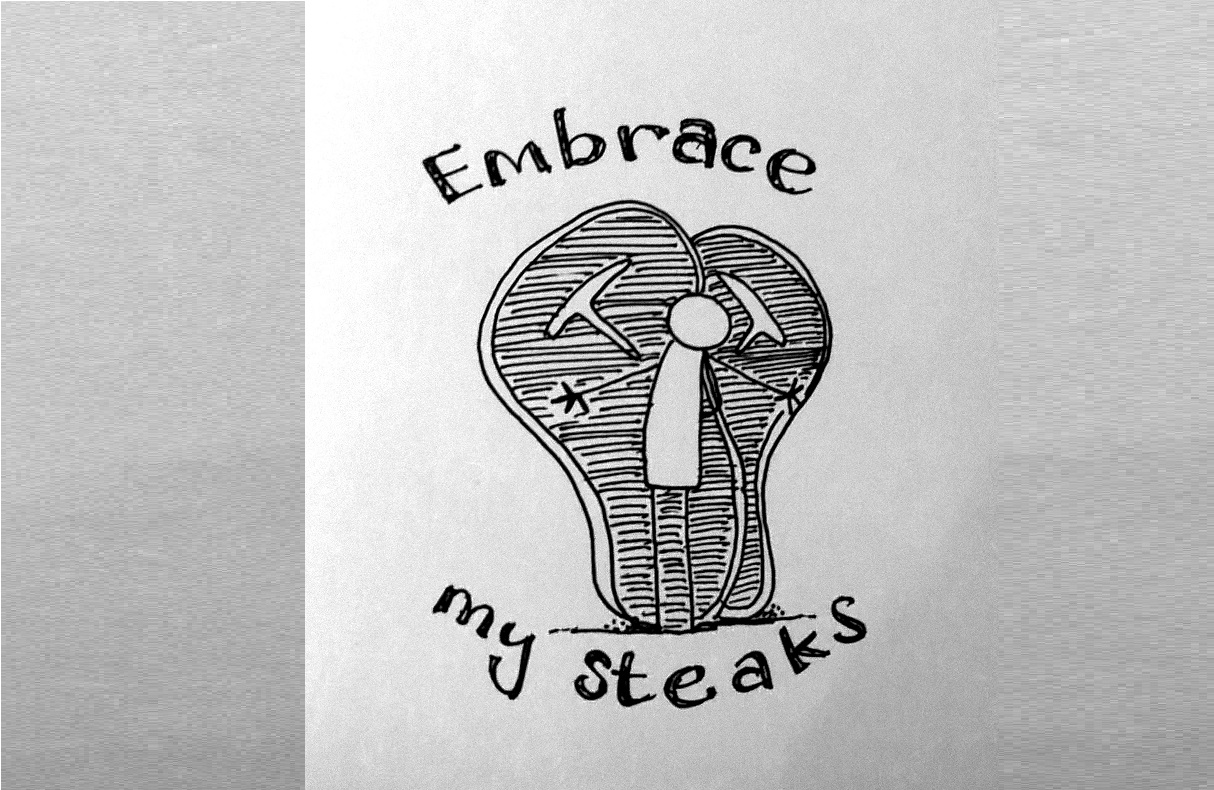 Embrace
my steaks